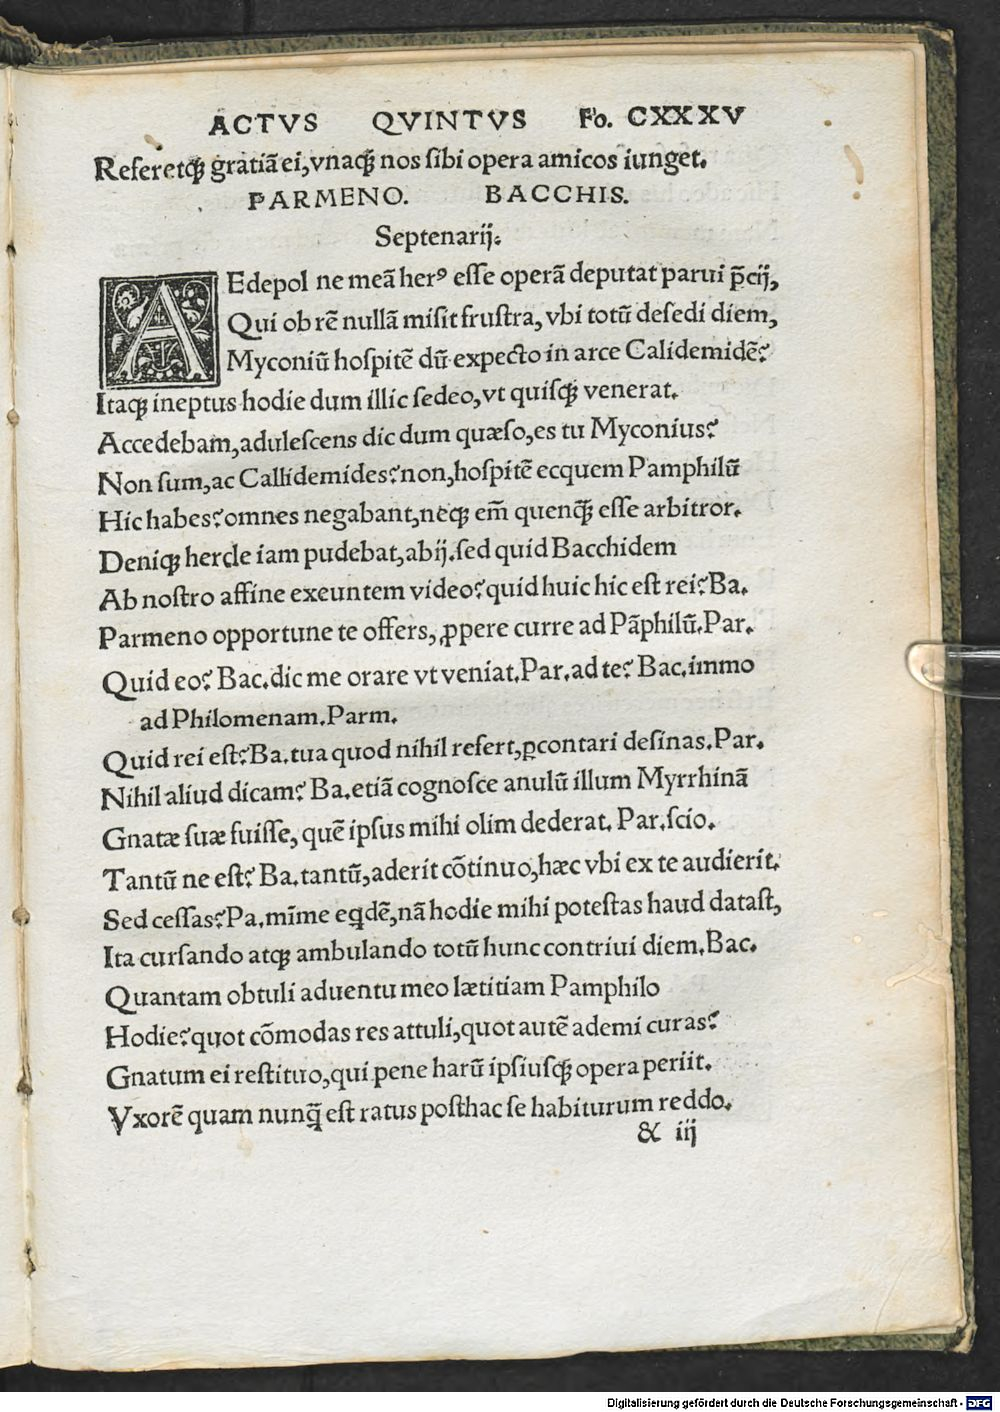 ACTVS QVINTVS Fo. CXXXV
Referetqꝫ gratiã ei, vnaqꝫ nos sibi opera amicos iunget.
PARMENO. BACCHIS.
Septenarij.
AEdepol ne meã herꝰ esse operã deputat parui p̃cij,
Qui ob rẽ nullã misit frustra, vbi totũ desedi diem,
Myconiũ hospitẽ dũ expecto in arce Calidemidẽ?
Itaqꝫ ineptus hodie dum illic sedeo, vt quisqꝫ venerat.
Accedebam, adulescens dic dum quæso, es tu Myconius?
Non sum, ac Callidemides? non, hospitẽ ecquem Pamphilũ
Hic habes? omnes negabant, neqꝫ em̃ quenqꝫ̃ esse arbitror.
Deniqꝫ hercle iam pudebat, abij. sed quid Bacchidem
Ab nostro affine exeuntem video? quid huic hic est rei? Ba.
Parmeno opportune te offers, ꝓpere curre ad Pãphilũ. Par.
Quid eo? Bac. dic me orare vt veniat. Par. ad te? Bac. immo
ad Philomenam. Parm.
Quid rei est? Ba. tua quod nihil refert, ꝑcontari desinas. Par.
Nihil aliud dicam? Ba. etiã cognosce anulũ illum Myrrhinã
Gnatæ suæ fuisse, quẽ ipsus mihi olim dederat. Par. scio.
Tantũ ne est? Ba. tantũ, aderit cõtinuo, hæc vbi ex te audierit.
Sed cessas? Pa. mĩme eqdẽ, nã hodie mihi potestas haud datast,
Ita cursando atqꝫ ambulando totũ hunc contriui diem. Bac.
Quantam obtuli aduentu meo lætitiam Pamphilo
Hodie? quot cõmodas res attuli, quot autẽ ademi curas?
Gnatum ei restituo, qui pene harũ ipsiusqꝫ opera periit.
Vxorẽ quam nunqꝫ̃ est ratus posthac se habiturum reddo.
& iij
Digitalisierung gefördert durch die Deutsche Forschungsgemeinschaft - DFG